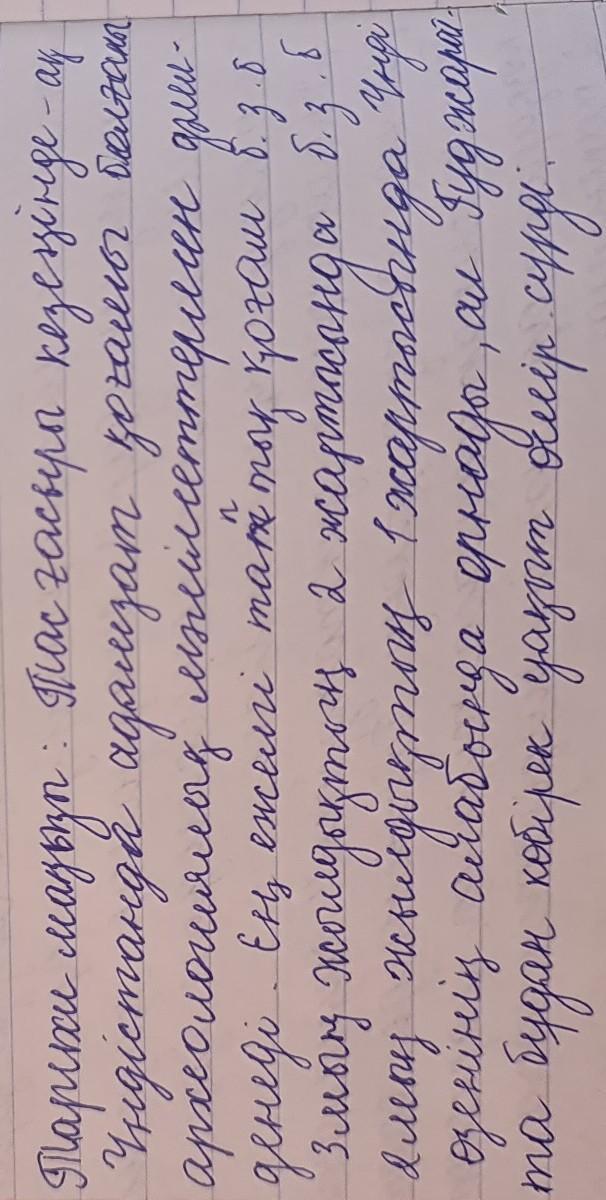 Тарихи маңызы: Тас ғасыры кезеңінде-ақ
Үндістанда адамзат қоғамы болғаны
археологиялық мәліметтермен дәлел-
денеді. Ең ежелгі таптық қоғам б.з.б
3мың жылдықтың 2 жартысында б.з.б
2мың жылдықтың 1 жартысында Үнді
өзенінің алабында орнады, ал Гуджарат-
та бұдан көбірек уақыт өмір сүрді.